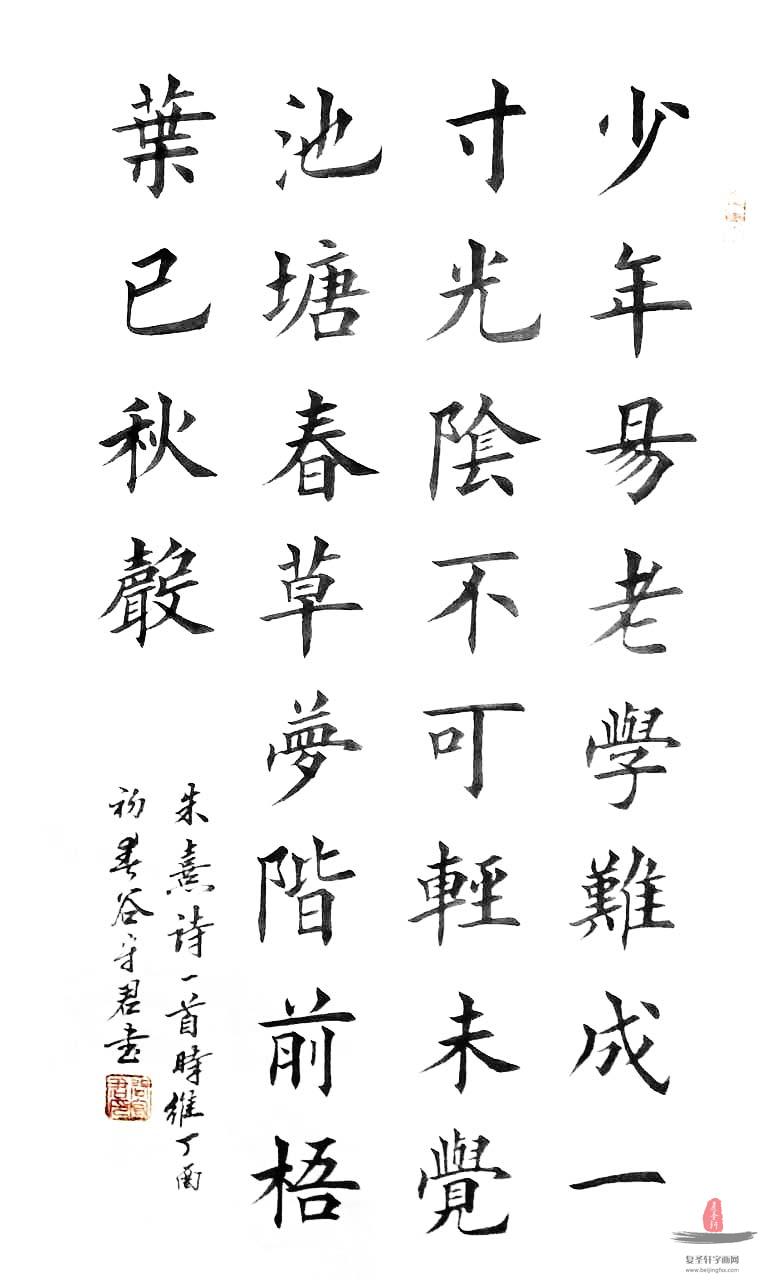 少年易老學難成一
寸光陰不可輕未覺
池塘春草夢階前梧
葉已秋聲
朱熹詩一首時維丁酉
初春谷守君书
复圣轩字画网
www.beijingfsx.com